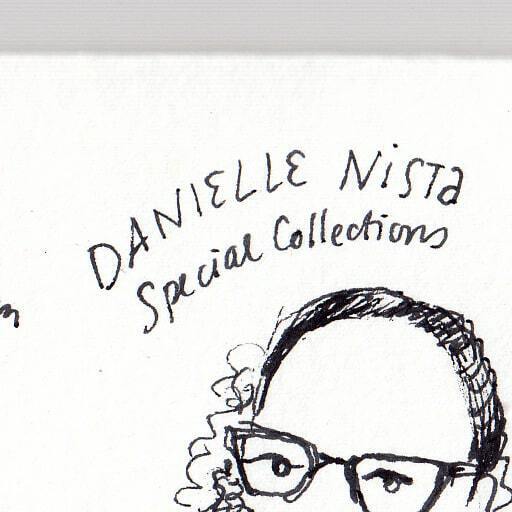 DANIELLE NISTa
Special Collections